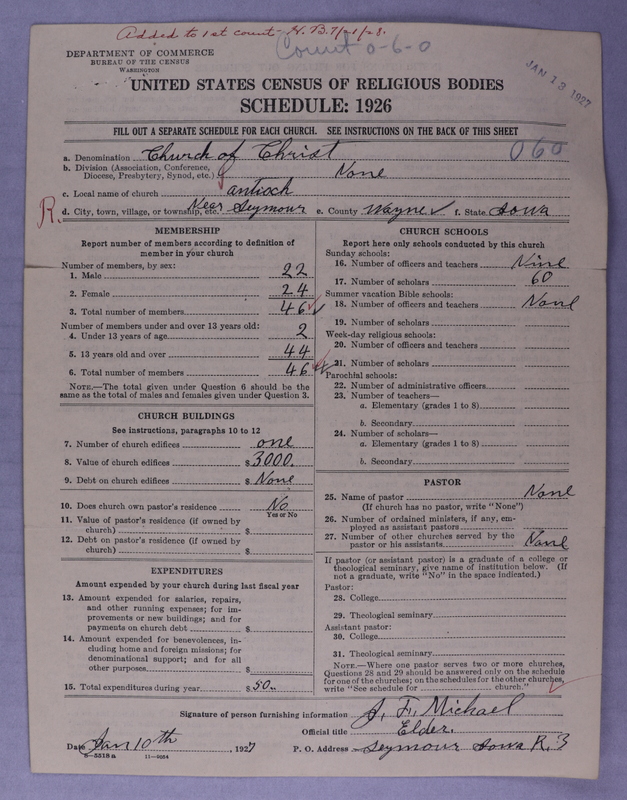 Added to 1st count - H. B. 7/21/28.
Count 0-6-0
DEPARTMENT OF COMMERCE
BUREAU OF THE CENSUS
WASHINGTON
JAN 13 1927
UNITED STATES CENSUS OF RELIGIOUS BODIES
SCHEDULE: 1926
FILL OUT A SEPARATE SCHEDULE FOR EACH CHURCH. SEE INSTRUCTIONS ON THE BACK OF THIS SHEET
060
a. Denomination Church of Christ
b. Division (Association, Conference, Diocese, Presbytery, Synod, etc.) None
c. Local name of church antioch
R. d. City, town, village, or township, etc. Near Seymour e. County Wayne f. State Iowa
MEMBERSHIP
Report number of members according to definition of
member in your church
Number of members, by sex:
1. Male 22
2. Female 24
3. Total number of members 46
Number of members under and over 13 years old:
4. Under 13 years of age 2
5. 13 years old and over 44
6. Total number of members 46
NOTE.—The total given under Question 6 should be
same as the total of males and females given under Question 3.
CHURCH BUILDINGS
See instructions, paragraphs 10 to 12
7. Number of church edifices one
8. Value of church edifices $ 3000.
9. Debt on church edifices $ None
10. Does church own pastor's residence No
Yes or No
11. Value of pastor's residence (if owned by
church) $
12. Debt on pastor's residence (if owned by
church) $
EXPENDITURES
Amount expended by your church during last fiscal year
13. Amount expended for salaries, repairs,
and other running expenses; for im-
provements or new buildings; and for
payments on church debt $
14. Amount expended for benevolences, in-
cluding home and foreign missions; for
denominational support; and for all
other purposes $
15. Total expenditures during year $ 50..
CHURCH SCHOOLS
Report here only schools conducted by this church
Sunday schools:
16. Number of officers and teachers Nine
17. Number of scholars 60
Summer vacation Bible schools:
18. Number of officers and teachers None
19. Number of scholars
Week-day religious schools:
20. Number of officers and teachers
21. Number of scholars
Parochial schools:
22. Number of administrative officers
23. Number of teachers—
a. Elementary (grades 1 to 8)
b. Secondary
24. Number of scholars—
a. Elementary (grades 1 to 8)
b. Secondary
PASTOR
25. Name of pastor None
(If church has no pastor, write "None")
26. Number of ordained ministers, if any, em-
ployed as assistant pastors
27. Number of other churches served by the
pastor or his assistants None
If pastor (or assistant pastor) is a graduate of a college or
theological seminary, give name of institution below. (If
not a graduate, write "No" in the space indicated.)
Pastor:
28. College
29. Theological seminary
Assistant pastor:
30. College
31. Theological seminary
NOTE.—Where one pastor serves two or more churches,
Questions 28 and 29 should be answered only on the schedule
for one of the churches; on the schedules for the other churches,
write "See schedule for church."
Signature of person furnishing information J. F. Michael
Official title Elder.
Date Jan 10th, 1927 P. O. Address Seymour Iowa R. 3
8—5318 a 11—9054